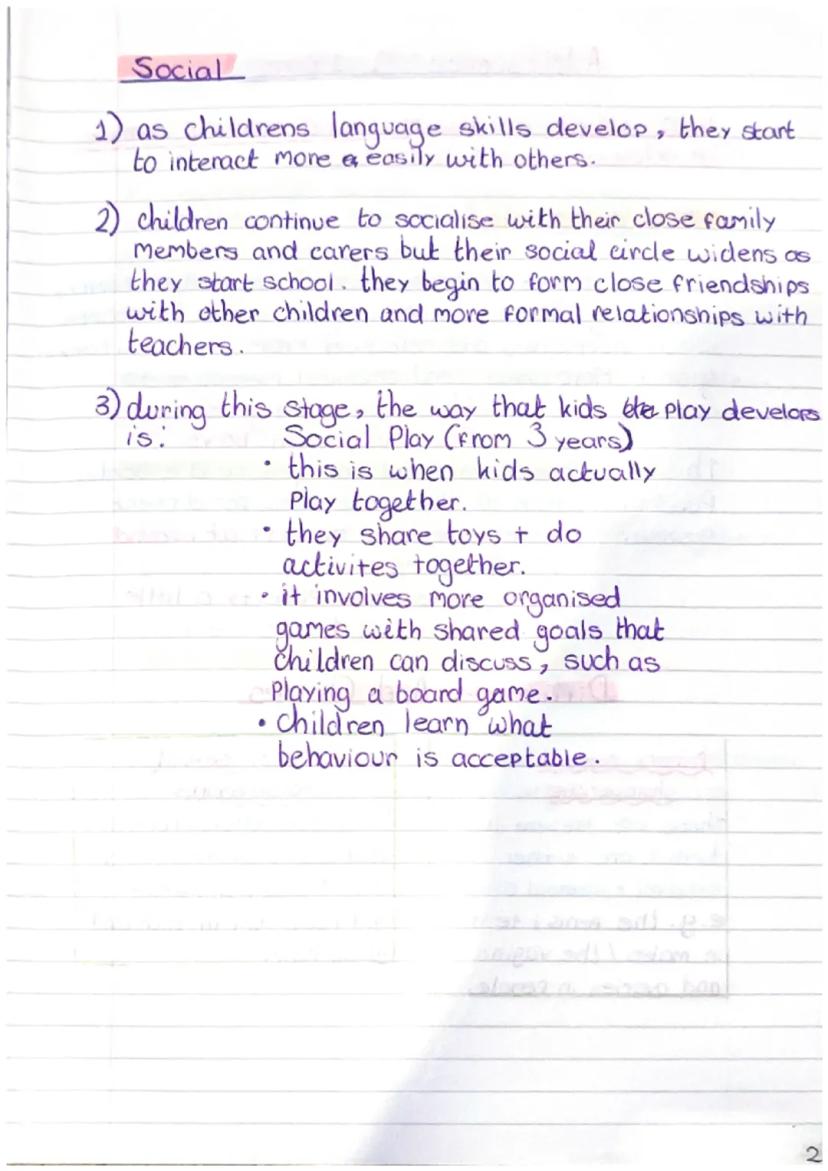 Social
1) as childrens language skills develop, they start
to interact more easily with others.
2) children continue to socialise with their close family
members and carers but their social circle widens as
they start school. they begin to form close friendships
with other children and more formal relationships with
teachers.
3) during this stage, the way that kids play develops
is: Social Play (from 3 years)
• this is when kids actually
Play together.
• they share toys + do
activites together.
• it involves more organised
games with shared goals that
Children can discuss, such as
Playing a board game.
• Children learn what
behaviour is acceptable.
2